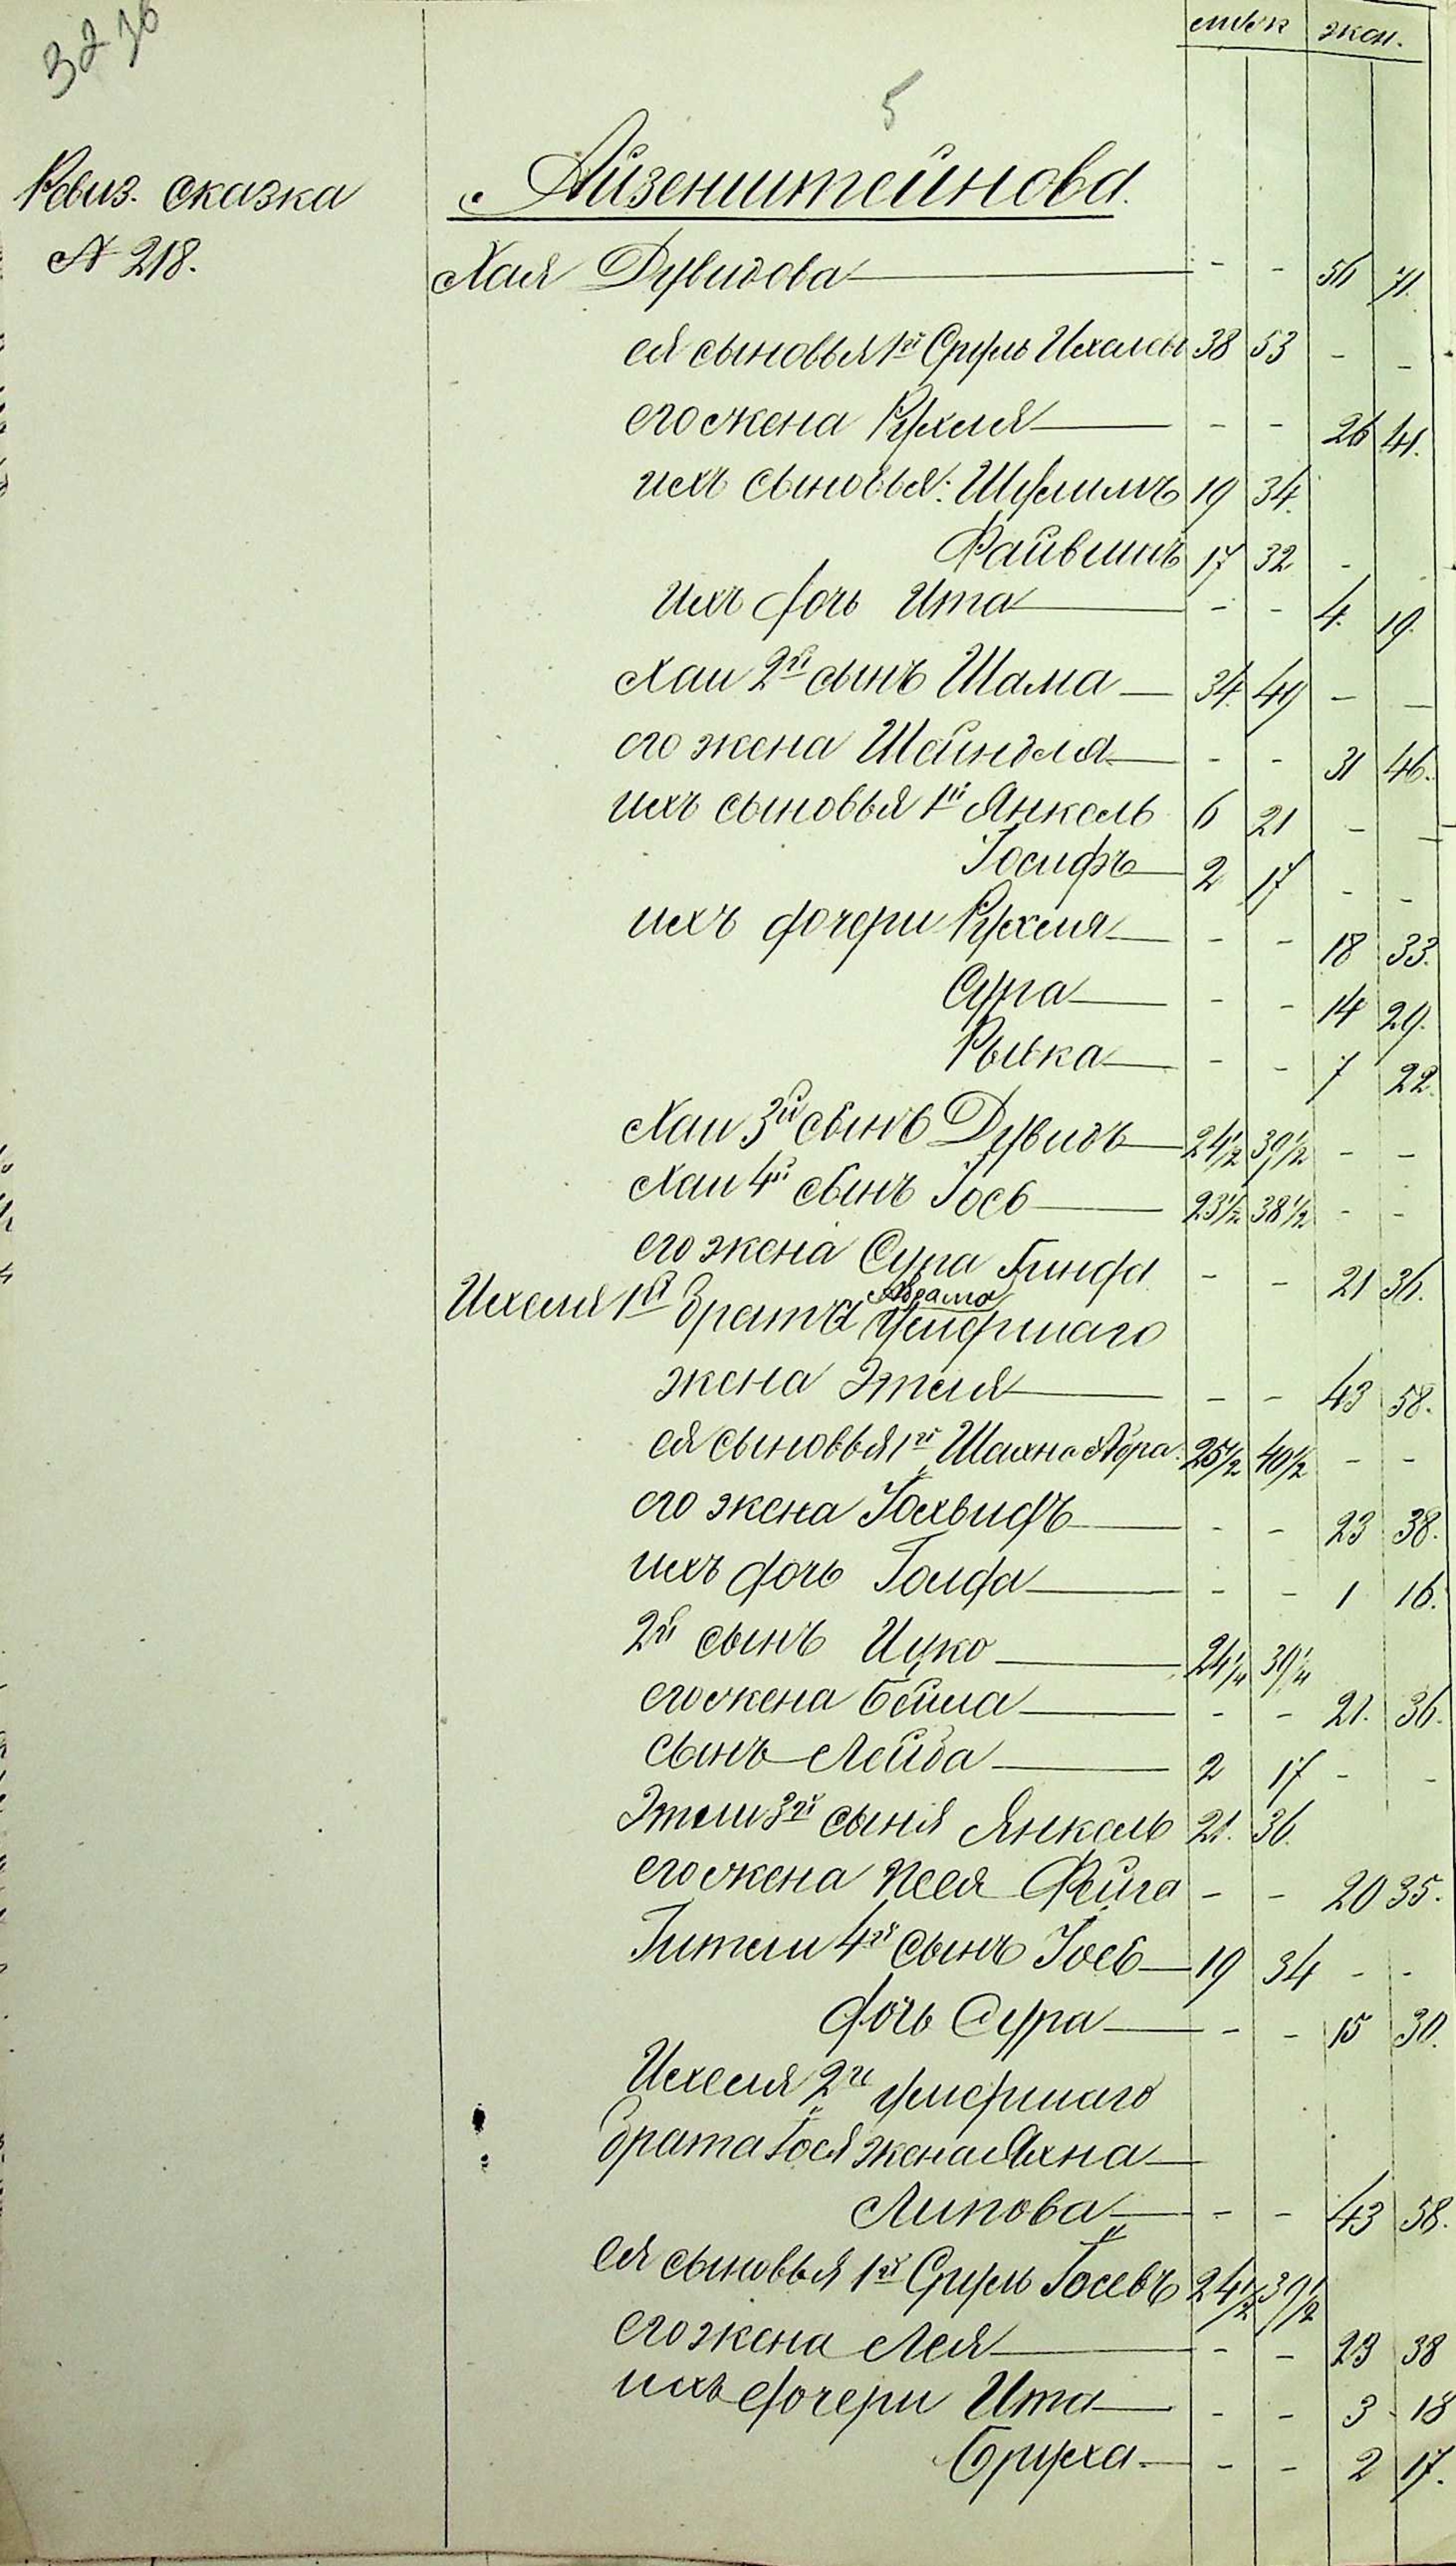 3236
мѣк экон.
5
Ревиз. сказка
№ 218.
Айзенштейнова.
Хая Дувидова — - - 56 71.
ея сыновья 1й Сруль Ихелев 38 53 - -
его жена Рухля — - - 26 41.
ихъ сыновья: Шулимъ 19 34.
Файвишъ 17 32 -
ихъ дочь Ита — - - 4. 19.
Хаи 2й сынъ Шама — 34. 49 - -
его жена Шейндля — - - 31 46.
ихъ сыновья 1й Янкель 6 21 - -
Іосифъ — 2 17 - -
ихъ дочери Рухля — - - 18 33.
Сура — - - 14 29.
Рывка — - - 7 22.
Хаи 3й сынъ Дувидъ — 24 1/2 39 1/2 - -
Хаи 4й сынъ Іось — 23 1/2 38 1/2 - -
его жена Сура Гинда - - 21 36.
Абрама
Ихеля 1й брата умершаго
жена Этля — - - 43 58.
ея сыновья 1й Шахно Абра. 25 1/2 40 1/2 - -
его жена Іохвидъ — - - 23 38.
ихъ дочь Голда — - - 1 16.
2й сынъ Ицко — 24 1/4 39 1/4
его жена Бейла — - - 21. 36.
сынъ Лейба — 2 17 - -
Этли 3й сынъ Янкель 21. 36.
его жена Песя Фейга - - 20 35.
Гитли 4й сынъ Іось — 19 34 - -
дочь Сура — - - 15 30.
Ихеля 2й умершаго
брата Іося жена Яхна —
Липова — - - 43 58.
ея сыновья 1й Сруль Іосевъ 24 1/2 39 1/2
его жена Лея — - - 23 38
ихъ дочери Ита — - - 3 18
Бруха — - - 2 17.